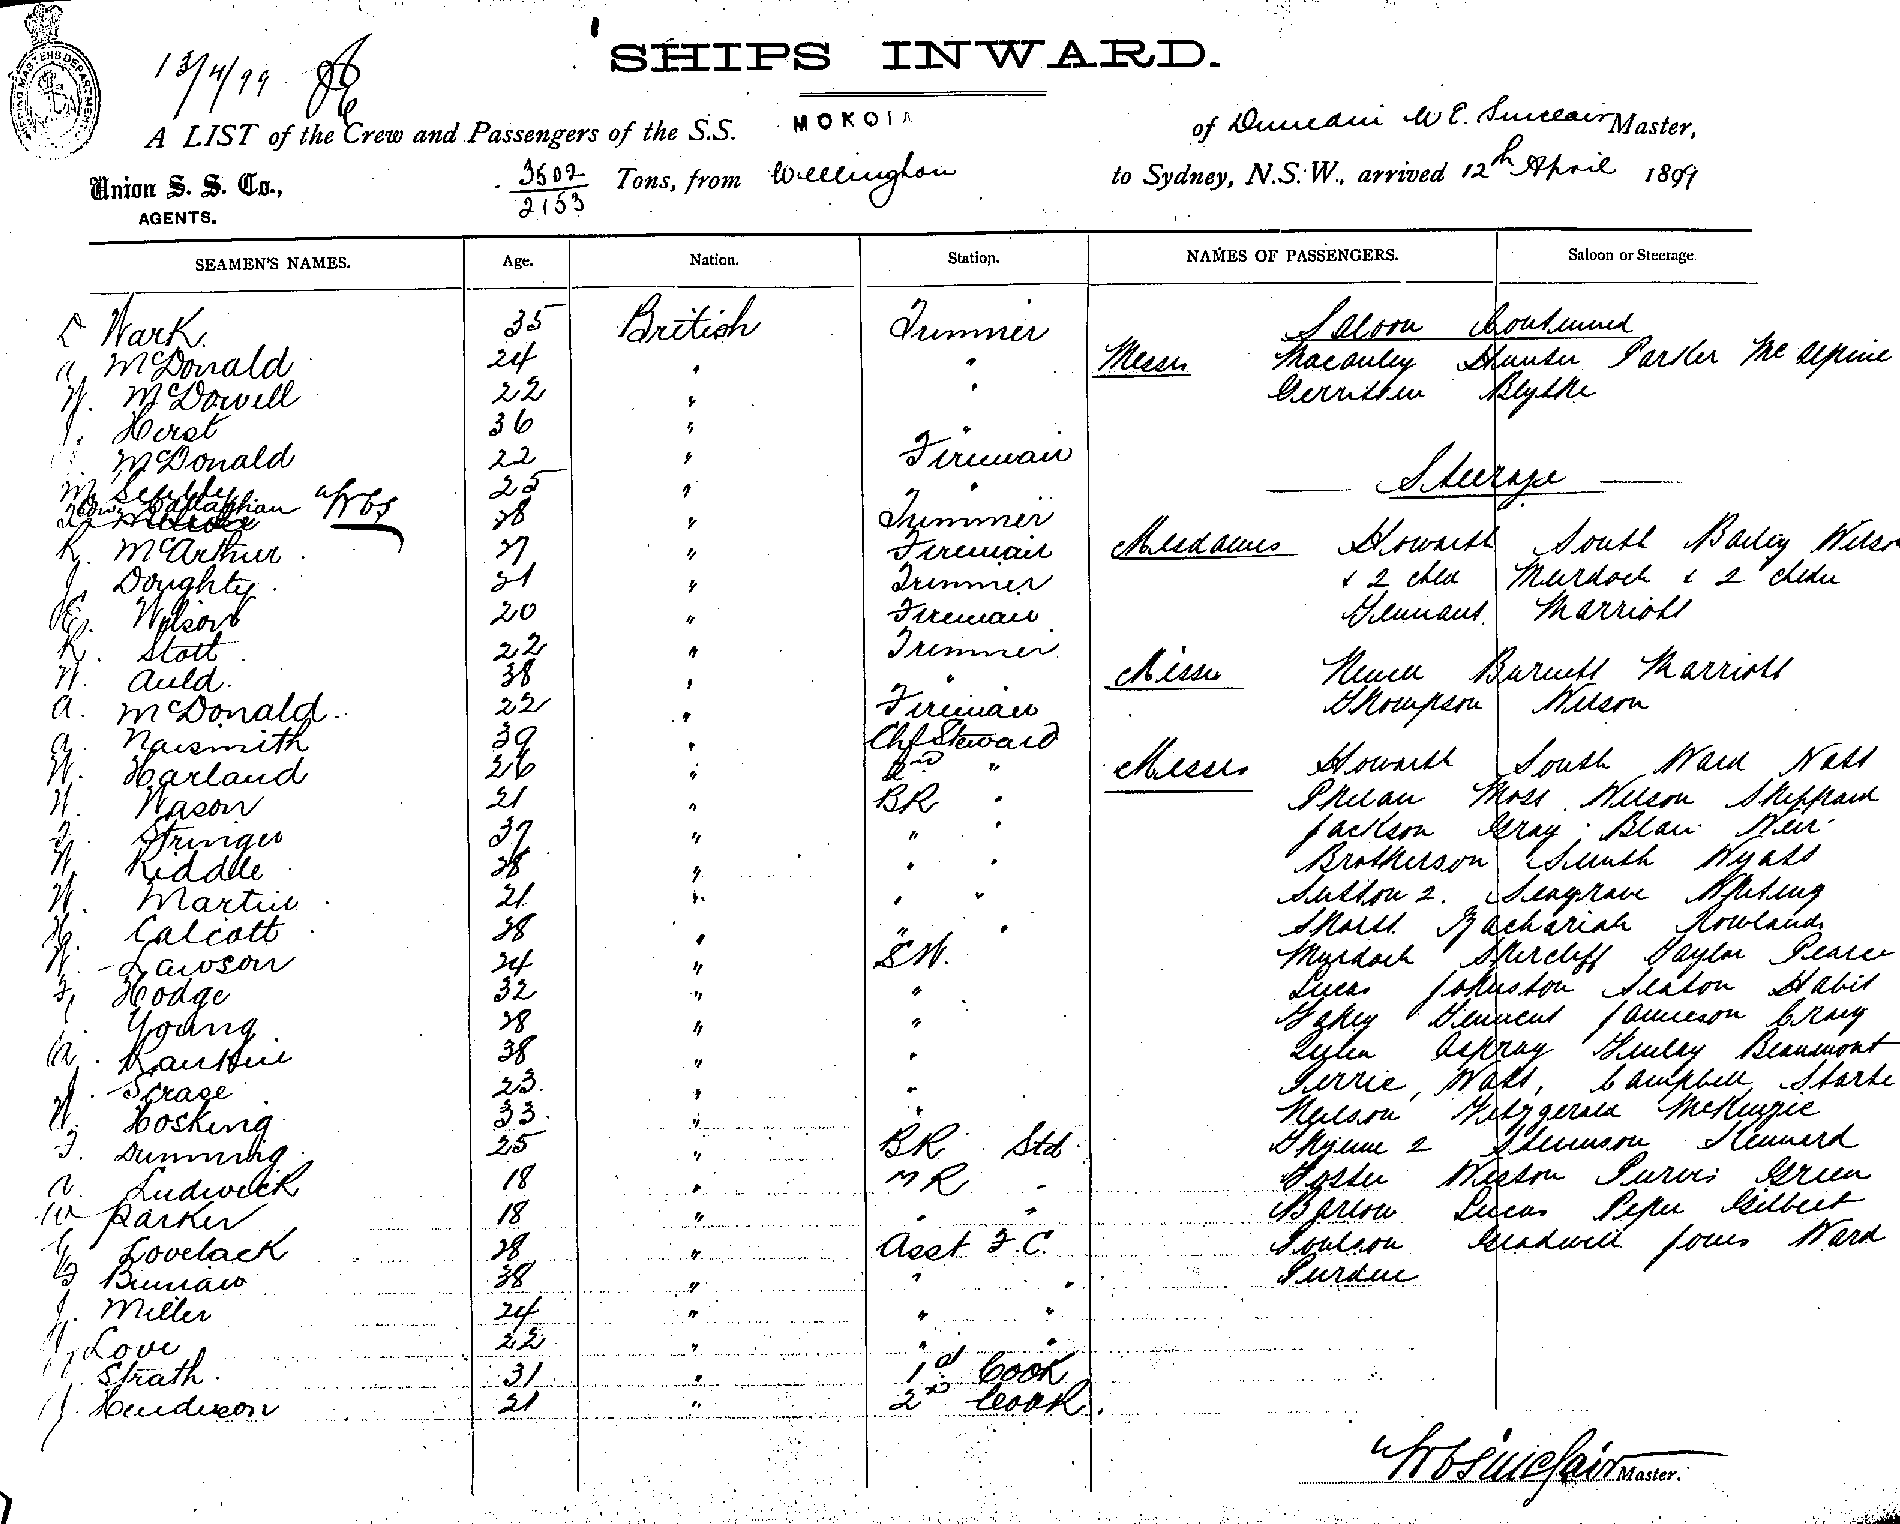 13/4/99
SHIPS INWARD.
A LIST of the Crew and Passengers of the S.S. MOKOIA of Duncan McE. Sinclair Master,
Union S. S. Co., AGENTS.
3502/2153 Tons, from Wellington to Sydney, N.S.W., arrived 12th April 1899
SEAMEN'S NAMES. Age. Nation. Station. NAMES OF PASSENGERS. Saloon or Steerage
Wark 35 British Trimmer
a McDonald 24 " "
W. McDowell 22 " "
J. Hirst 36 " "
McDonald 22 " Fireman
M. 25 " "
Callaghan 28 " Trimmer
R. McArthur 27 " Fireman
J. Doughty 21 " Trimmer
E. Wilson 20 " Fireman
R. Stott 22 " Trimmer
W. Auld 38 " "
A. McDonald 22 " Fireman
a. Naismith 39 " Chf Steward
W. Harland 26 " 2nd "
W. Nason 21 " BR "
Stringer 37 " " "
W. Riddle 28 " " "
W. Martin 21 " " "
H. Calcott 38 " " "
W. Lawson 24 " S W.
F. Hodge 32 " "
Young 28 " "
Rankine 38 " "
J. Scrase 23 " "
W. Hosking 33 " "
F. Dunning 25 " BR Std
Ludwick 18 " MR "
W Parker 18 " " "
Lovelack 28 " Asst F. C.
38 " " "
J. Miller 24 " " "
Love 22 " " "
Strath 31 " 1st Cook
J. Henderson 21 " 2nd Cook
Saloon Continued
Messrs Macauley Hunter Parker McAlpine
Gerritsen Blythe
Steerage
Mesdames Howarth South Bailey Wilson
& 2 chld Murdoch & 2 chldn
Tennant Marriott
Misses Newell Burnett Marriott
Thompson Wilson
Messrs Howarth South Ward Watt
Phelan Moss Wilson Sheppard
Jackson Gray Blair Weir
Brotherson Smith Wyatt
Sutton 2. Seagrave Whiting
Short Zachariah Rowlands
Murdoch Shercliff Taylor Pearce
Lucas Johnston Seaton Habit
Clement Jamieson Craig
Aspray Finlay Beaumont
Perrie, Watt, Campbell Starke
Neilson Fitzgerald McKenzie
Thynne 2 Stevenson Kennard
Foster Weston Purvis Green
Barlow Lucas Piper Gilbert
Poulson Gradwell Jones Ward
Purdue
McESinclair Master.